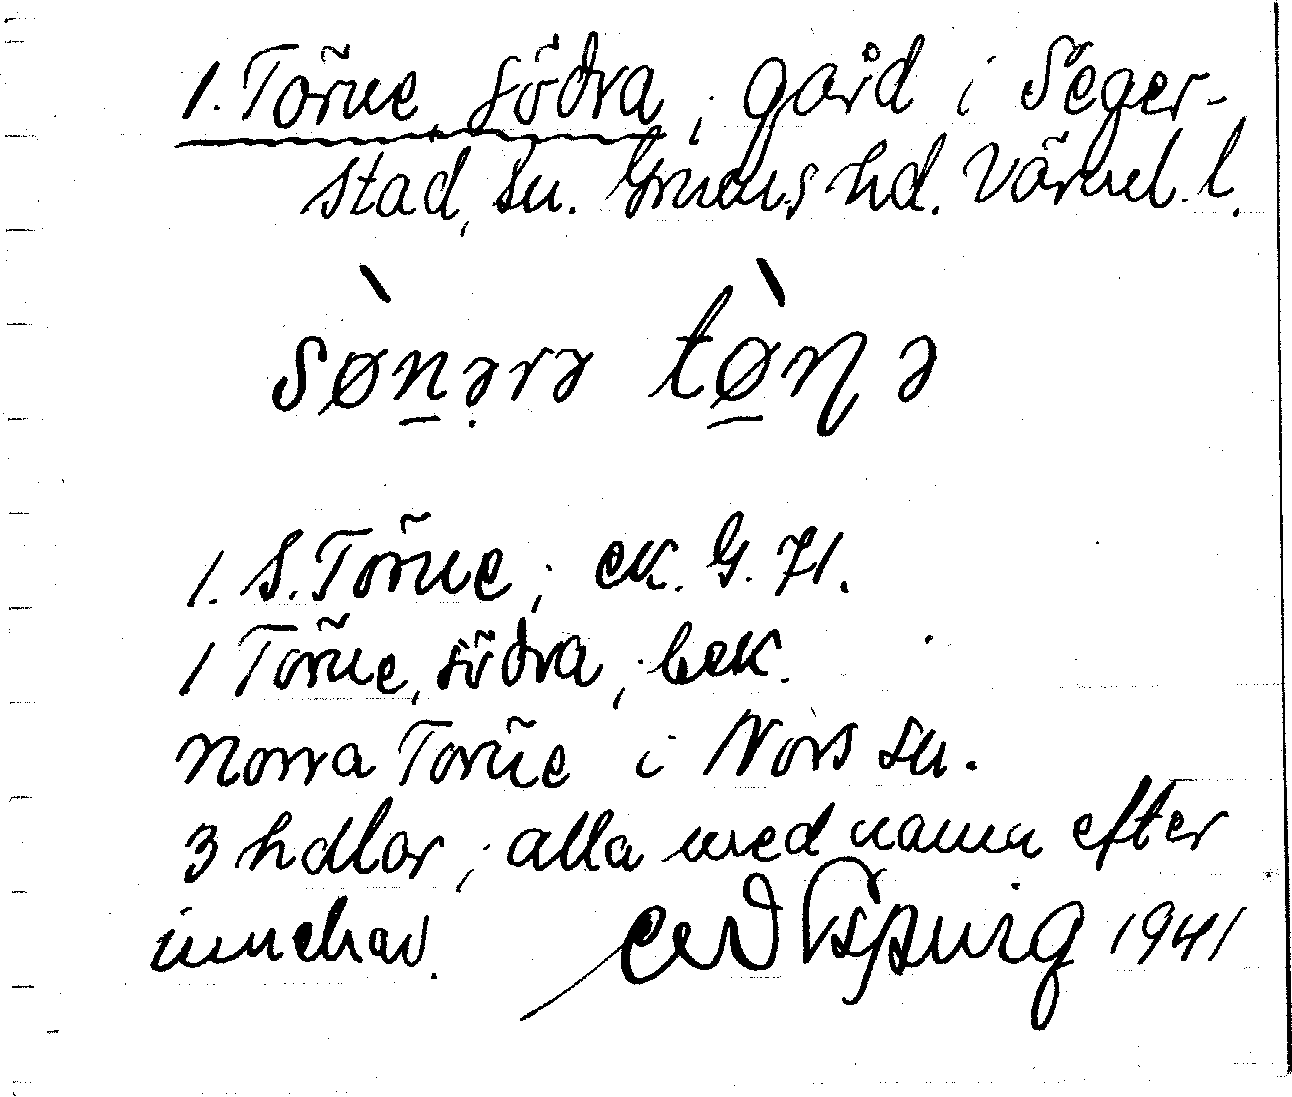 1. Törne, södra, gård i Seger-
stad, sn. Grums hd. Värml. l.
sø̀nərə tø̀ɳə
1. S. Törne, ek. G. 71.
1 Törne, södra, bek.
Norra Törne i Nors sn.
3 hdlar, alla med namn efter
innehav. 1941